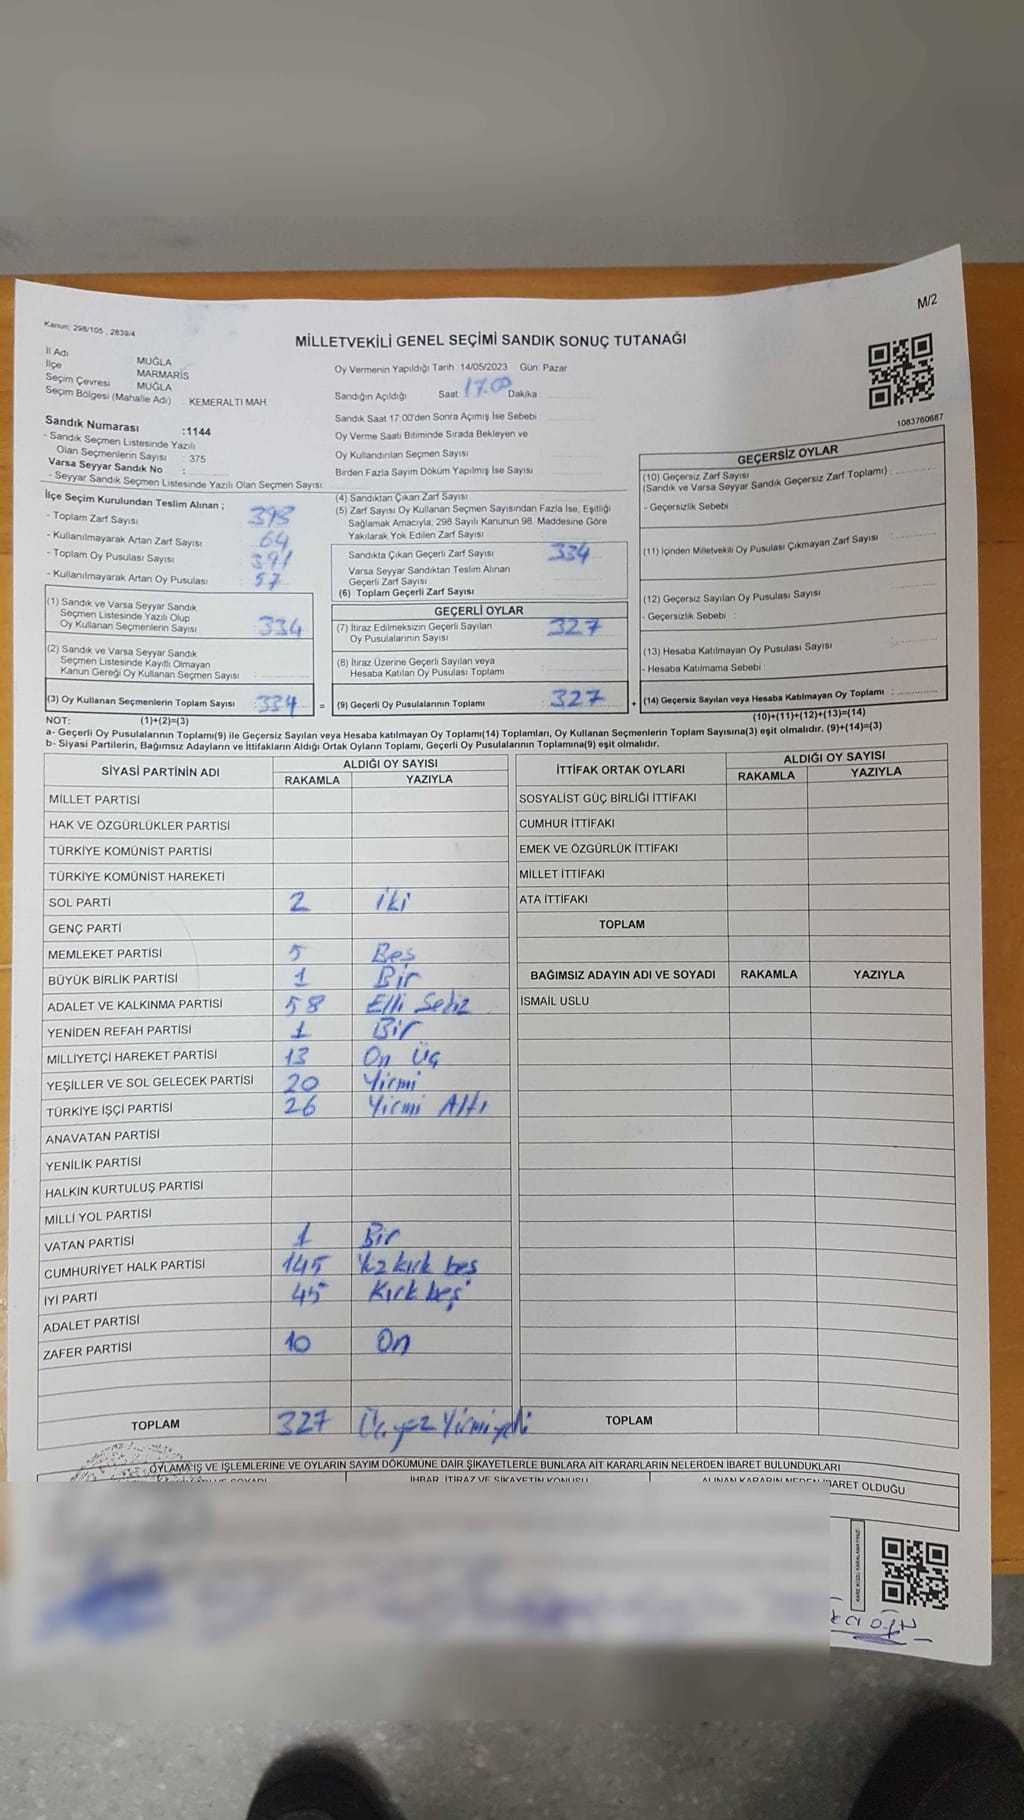 M/2
Kanun; 298/105 , 2839/4
MİLLETVEKİLİ GENEL SEÇİMİ SANDIK SONUÇ TUTANAĞI
İl Adı MUĞLA
İlçe MARMARİS
Seçim Çevresi MUĞLA
Seçim Bölgesi (Mahalle Adı) : KEMERALTI MAH.
Sandık Numarası :1144
- Sandık Seçmen Listesinde Yazılı
Olan Seçmenlerin Sayısı : 375
Varsa Seyyar Sandık No :
- Seyyar Sandık Seçmen Listesinde Yazılı Olan Seçmen Sayısı
Oy Vermenin Yapıldığı Tarih :14/05/2023 Gün: Pazar
Sandığın Açıldığı Saat: 17.00 Dakika
Sandık Saat 17:00'den Sonra Açımış İse Sebebi
Oy Verme Saati Bitiminde Sırada Bekleyen ve
Oy Kullandırılan Seçmen Sayısı
Birden Fazla Sayım Döküm Yapılmış İse Sayısı
1083760687
İlçe Seçim Kurulundan Teslim Alınan ;
- Toplam Zarf Sayısı 398
- Kullanılmayarak Artan Zarf Sayısı 64
- Toplam Oy Pusulası Sayısı 391
- Kullanılmayarak Artan Oy Pusulası 57
(1) Sandık ve Varsa Seyyar Sandık
Seçmen Listesinde Yazılı Olup
Oy Kullanan Seçmenlerin Sayısı 334
(2) Sandık ve Varsa Seyyar Sandık
Seçmen Listesinde Kayıtlı Olmayan
Kanun Gereği Oy Kullanan Seçmen Sayısı :
(3) Oy Kullanan Seçmenlerin Toplam Sayısı : 334 =
(4) Sandıktan Çıkan Zarf Sayısı
(5) Zarf Sayısı Oy Kullanan Seçmen Sayısından Fazla İse, Eşitliği
Sağlamak Amacıyla; 298 Sayılı Kanunun 98. Maddesine Göre
Yakılarak Yok Edilen Zarf Sayısı
Sandıkta Çıkan Geçerli Zarf Sayısı 334
Varsa Seyyar Sandıktan Teslim Alınan
Geçerli Zarf Sayısı
(6) Toplam Geçerli Zarf Sayısı
GEÇERLİ OYLAR
(7) İtiraz Edilmeksizin Geçerli Sayılan
Oy Pusulalarının Sayısı 327
(8) İtiraz Üzerine Geçerli Sayılan veya
Hesaba Katılan Oy Pusulası Toplamı
(9) Geçerli Oy Pusulalarının Toplamı : 327 +
GEÇERSİZ OYLAR
(10) Geçersiz Zarf Sayısı
(Sandık ve Varsa Seyyar Sandık Geçersiz Zarf Toplamı) :
- Geçersizlik Sebebi
(11) İçinden Milletvekili Oy Pusulası Çıkmayan Zarf Sayısı
(12) Geçersiz Sayılan Oy Pusulası Sayısı
- Geçersizlik Sebebi :
(13) Hesaba Katılmayan Oy Pusulası Sayısı
- Hesaba Katılmama Sebebi :
(14) Geçersiz Sayılan veya Hesaba Katılmayan Oy Toplamı :
NOT: (1)+(2)=(3) (10)+(11)+(12)+(13)=(14)
a- Geçerli Oy Pusulalarının Toplamı(9) ile Geçersiz Sayılan veya Hesaba katılmayan Oy Toplamı(14) Toplamları, Oy Kullanan Seçmenlerin Toplam Sayısına(3) eşit olmalıdır. (9)+(14)=(3)
b- Siyasi Partilerin, Bağımsız Adayların ve İttifakların Aldığı Ortak Oyların Toplamı, Geçerli Oy Pusulalarının Toplamına(9) eşit olmalıdır.
SİYASİ PARTİNİN ADI ALDIĞI OY SAYISI
RAKAMLA YAZIYLA
MİLLET PARTİSİ
HAK VE ÖZGÜRLÜKLER PARTİSİ
TÜRKİYE KOMÜNİST PARTİSİ
TÜRKİYE KOMÜNİST HAREKETİ
SOL PARTİ 2 iki
GENÇ PARTİ
MEMLEKET PARTİSİ 5 Beş
BÜYÜK BİRLİK PARTİSİ 1 Bir
ADALET VE KALKINMA PARTİSİ 58 Elli Sekiz
YENİDEN REFAH PARTİSİ 1 Bir
MİLLİYETÇİ HAREKET PARTİSİ 13 On Üç
YEŞİLLER VE SOL GELECEK PARTİSİ 20 Yirmi
TÜRKİYE İŞÇİ PARTİSİ 26 Yirmi Altı
ANAVATAN PARTİSİ
YENİLİK PARTİSİ
HALKIN KURTULUŞ PARTİSİ
MİLLİ YOL PARTİSİ
VATAN PARTİSİ 1 Bir
CUMHURİYET HALK PARTİSİ 145 Yüz kırk beş
İYİ PARTİ 45 Kırk beş
ADALET PARTİSİ
ZAFER PARTİSİ 10 On
TOPLAM 327 Üçyüz Yirmiyedi
İTTİFAK ORTAK OYLARI ALDIĞI OY SAYISI
RAKAMLA YAZIYLA
SOSYALİST GÜÇ BİRLİĞİ İTTİFAKI
CUMHUR İTTİFAKI
EMEK VE ÖZGÜRLÜK İTTİFAKI
MİLLET İTTİFAKI
ATA İTTİFAKI
TOPLAM
BAĞIMSIZ ADAYIN ADI VE SOYADI RAKAMLA YAZIYLA
İSMAİL USLU
TOPLAM
OYLAMA İŞ VE İŞLEMLERİNE VE OYLARIN SAYIM DÖKÜMÜNE DAİR ŞİKAYETLERLE BUNLARA AİT KARARLARIN NELERDEN İBARET BULUNDUKLARI
İHBAR, İTİRAZ VE ŞİKAYETİN KONUSU ALINAN KARARIN NEDEN İBARET OLDUĞU